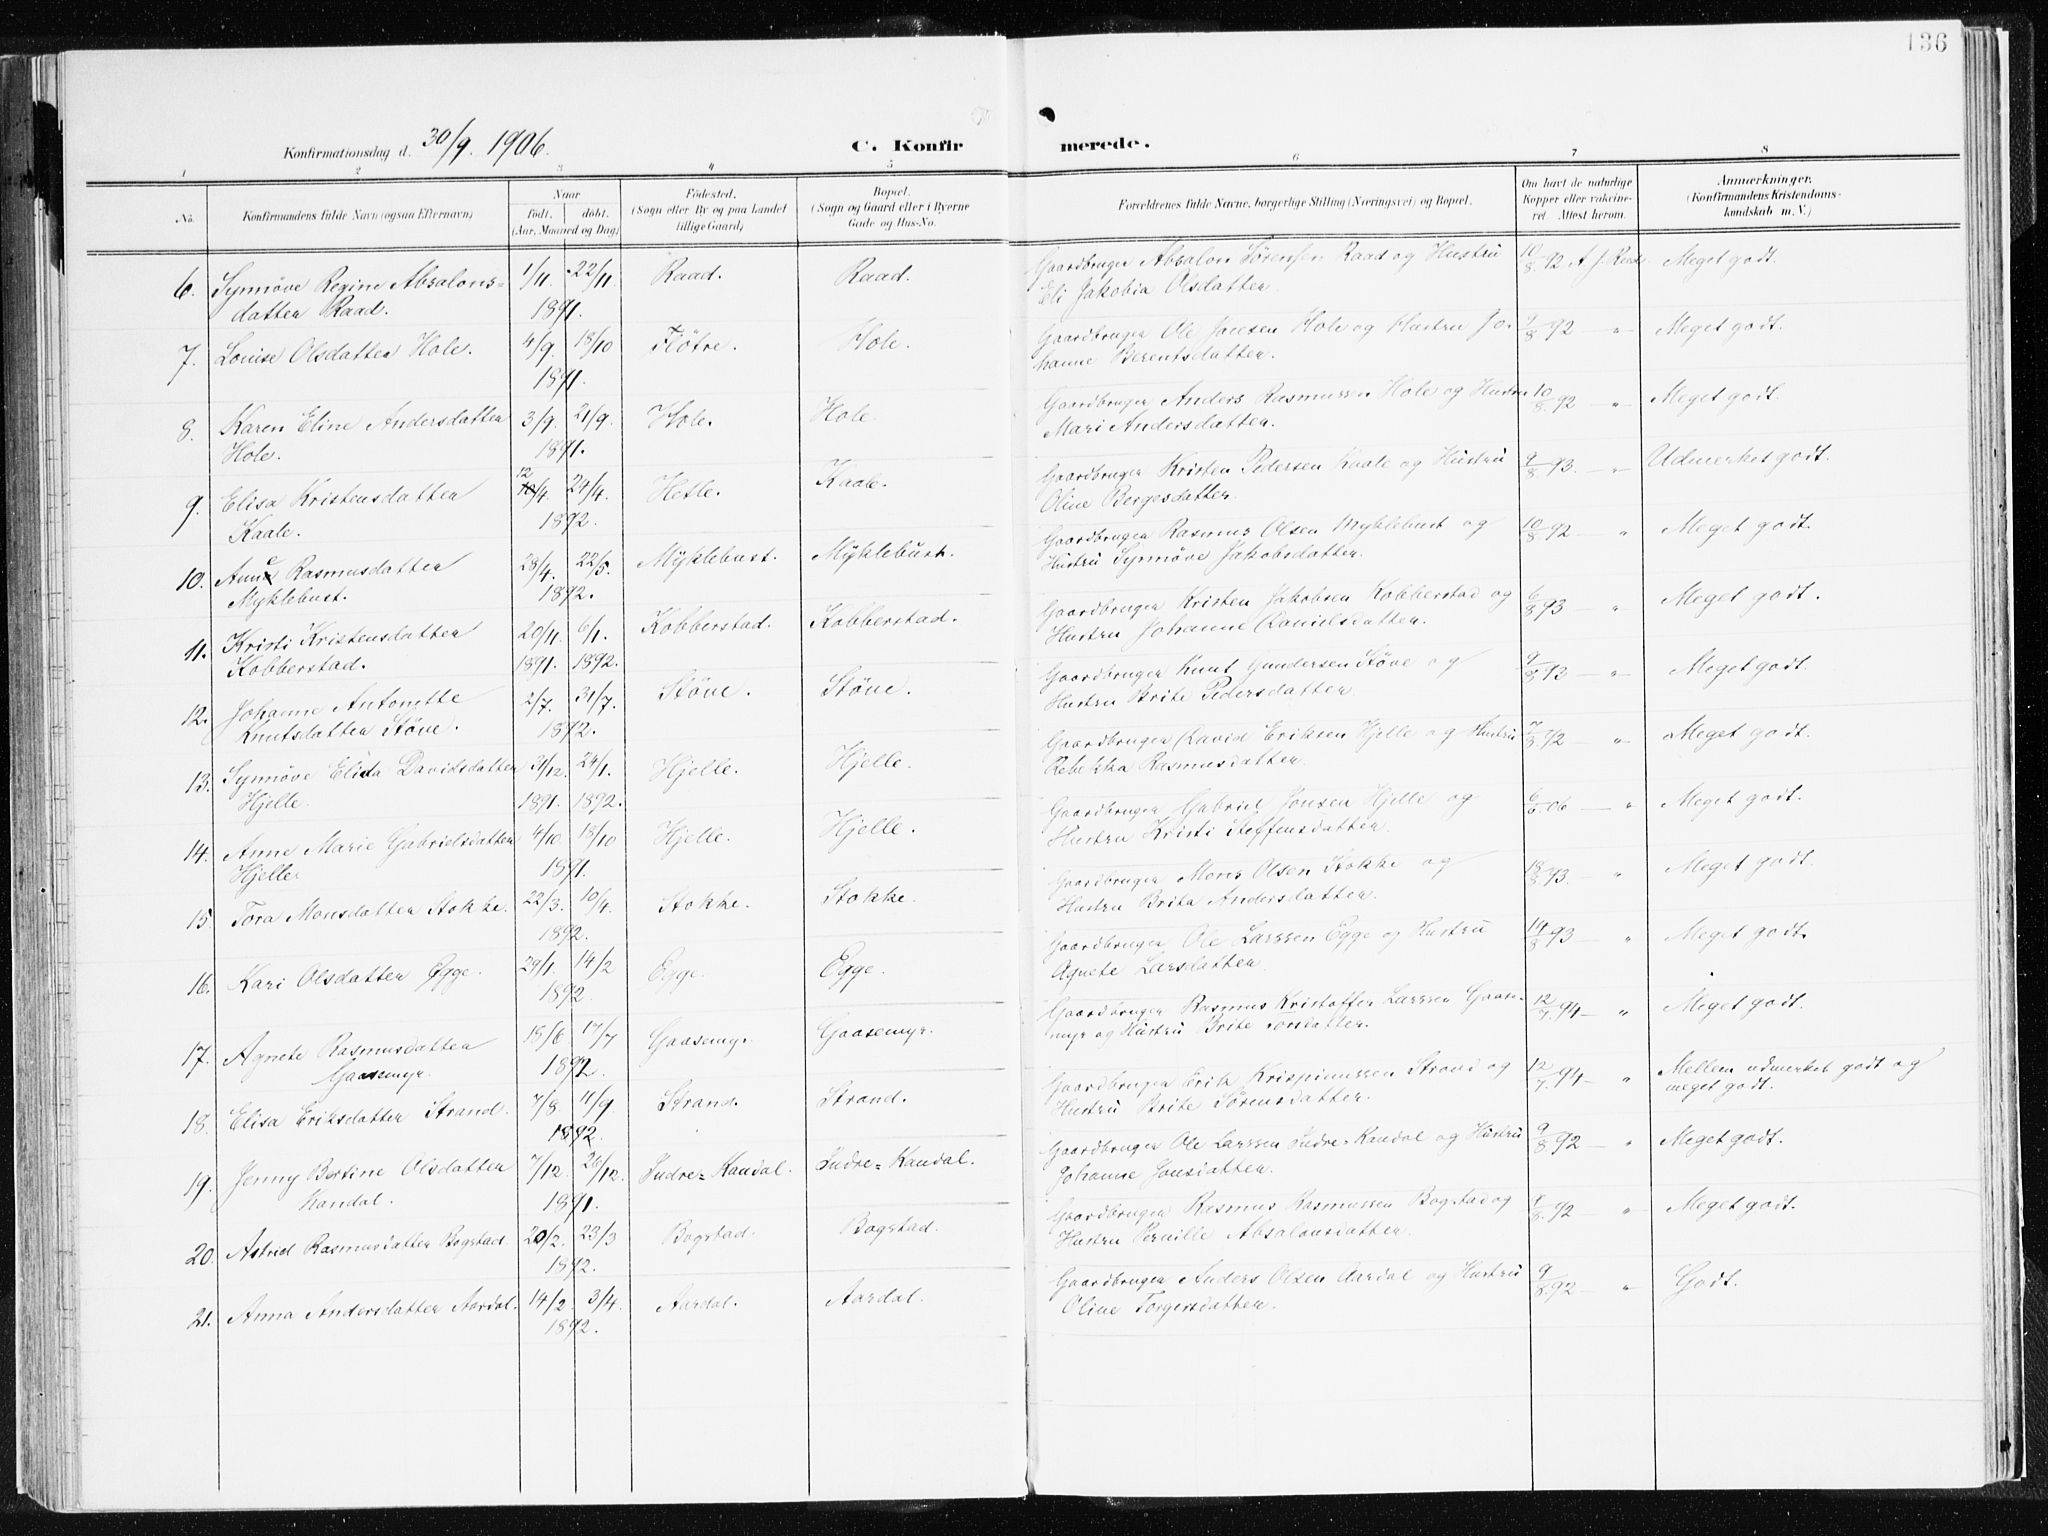 136
Konfirmationsdag d. 30/9. 1906.
C. Konfirmerede.
1 2 3 4 5 6 7 8
No. Konfirmandens fulde Navn (ogsaa Efternavn) Naar født. døbt. (Aar, Maaned og Dag) Fødested. (Sogn eller By og paa Landet tillige Gaard) Bopæl. (Sogn og Gaard eller i Byerne Gade og Hus-No. Forældrenes fulde Navne, borgerlige Stilling (Næringsvei) og Bopæl. Om havt de naturlige Kopper eller vakcineret. Attest herom. Anmærkninger. (Konfirmandens Kristendomskundskab m. V.)
6. Synnöve Regine Absalons= 1/11 22/11 Raad. Raad. Gaardbruger Absalon Sörensen Raad og Hustru 10/8 92 Meget godt.
datter Raad. 1891. Eli Jakobia Olsdatter.
7. Louise Olsdatter Hole. 4/9. 18/10 Flötre. Hole. Gaardbruger Ole Jonsen Hole og Hustru Jo- 9/8 92 " Meget godt.
1891. hanne Berentsdatter.
8. Karen Eline Andersdatter 3/9. 21/9. Hole. Hole. Gaardbruger Anders Rasmussen Hole og Hustru 10/8. 92 " Meget godt.
Hole. 1891. Mari Andersdatter.
9. Elisa Kristensdatter 12/4. 24/4. Hetle. Kaale. Gaardbruger Kristen Pedersen Kaale og Hustru 9/8 93. " Udmerket godt.
Kaale. 1892. Oline Bergesdatter.
10. Anne Rasmusdatter 28/4. 22/5. Myklebust. Myklebust. Gaardbruger Rasmus Olsen Myklebust og 10/8. 92 " Meget godt.
Myklebust. 1892. Hustru Synnöve Jakobsdatter.
11. Kristi Kristensdatter 20/11. 6/1. Kobberstad. Kobberstad. Gaardbruger Kristen Jakobsen Kobberstad og 6/8 93 " Meget godt.
Kobberstad. 1891. 1892. Hustru Johanne Danielsdatter.
12. Johanne Antonette 2/7. 31/7. Støve. Støve. Gaardbruger Knut Gundersen Støve og 9/8 93 " Meget godt.
Knutsdatter Støve. 1892. Hustru Brite Pedersdatter.
13. Synnöve Elida Davidsdatter 31/12. 24/1. Hjelle. Hjelle. Gaardbruger David Eriksen Hjelle og Hustru 92 " Meget godt.
Hjelle. 1891. 1892. Rebekka Rasmusdatter.
14. Anne Marie Gabrielsdatter 4/10. 18/10 Hjelle. Hjelle. Gaardbruger Gabriel Jonsen Hjelle og 06 " Meget godt.
Hjelle 1891. Hustru Kristi Steffensdatter.
15. Tora Monsdatter Stokke. 22/3. 10/4. Stokke. Stokke. Gaardbruger Mons Olsen Stokke og 18/8 93. " Meget godt.
1892. Hustru Brita Andersdatter.
16. Kari Olsdatter Egge. 29/1. 14/2 Egge. Egge. Gaardbruger Ole Larssen Egge og Hustru 14/8 93 " Meget godt.
1892. Agnete Larsdatter.
17. Agnete Rasmusdatter 15/6 17/7 Gaasemyr. Gaasemyr. Gaardbruger Rasmus Kristoffer Larssen Gaase- 12/7. 94 " Meget godt.
Gaasemyr. 1892. myr og Hustru Brite
18. Elisa Eriksdatter Strand. 7/8. 11/9 Strand. Strand. Gaardbruger Erik Krispinussen Strand og 12/7. 94 " Mellem udmerket godt og
1892. Hustru Brite Sörensdatter. meget godt.
19. Jenny Bertine Olsdatter 7/12. 26/12. Indre=Kandal. Indre=Kandal. Gaardbruger Ole Larssen Indre=Kandal og Hustru 9/8 92 " Meget godt.
Kandal. 1891. Johanne Jonsdatter.
20. Astrid Rasmusdatter Bogstad. 20/2. 23/3 Bogstad. Bogstad. Gaardbruger Rasmus Rasmussen Bogstad og 92 " Meget godt.
1892. Hustru Pernille Absalonsdatter.
21. Anna Andersdatter Aardal. 14/2. 3/4. Aardal. Aardal. Gaardbruger Anders Olsen Aardal og Hustru 9/8. 92 " Godt.
1892. Oline Torgersdatter.